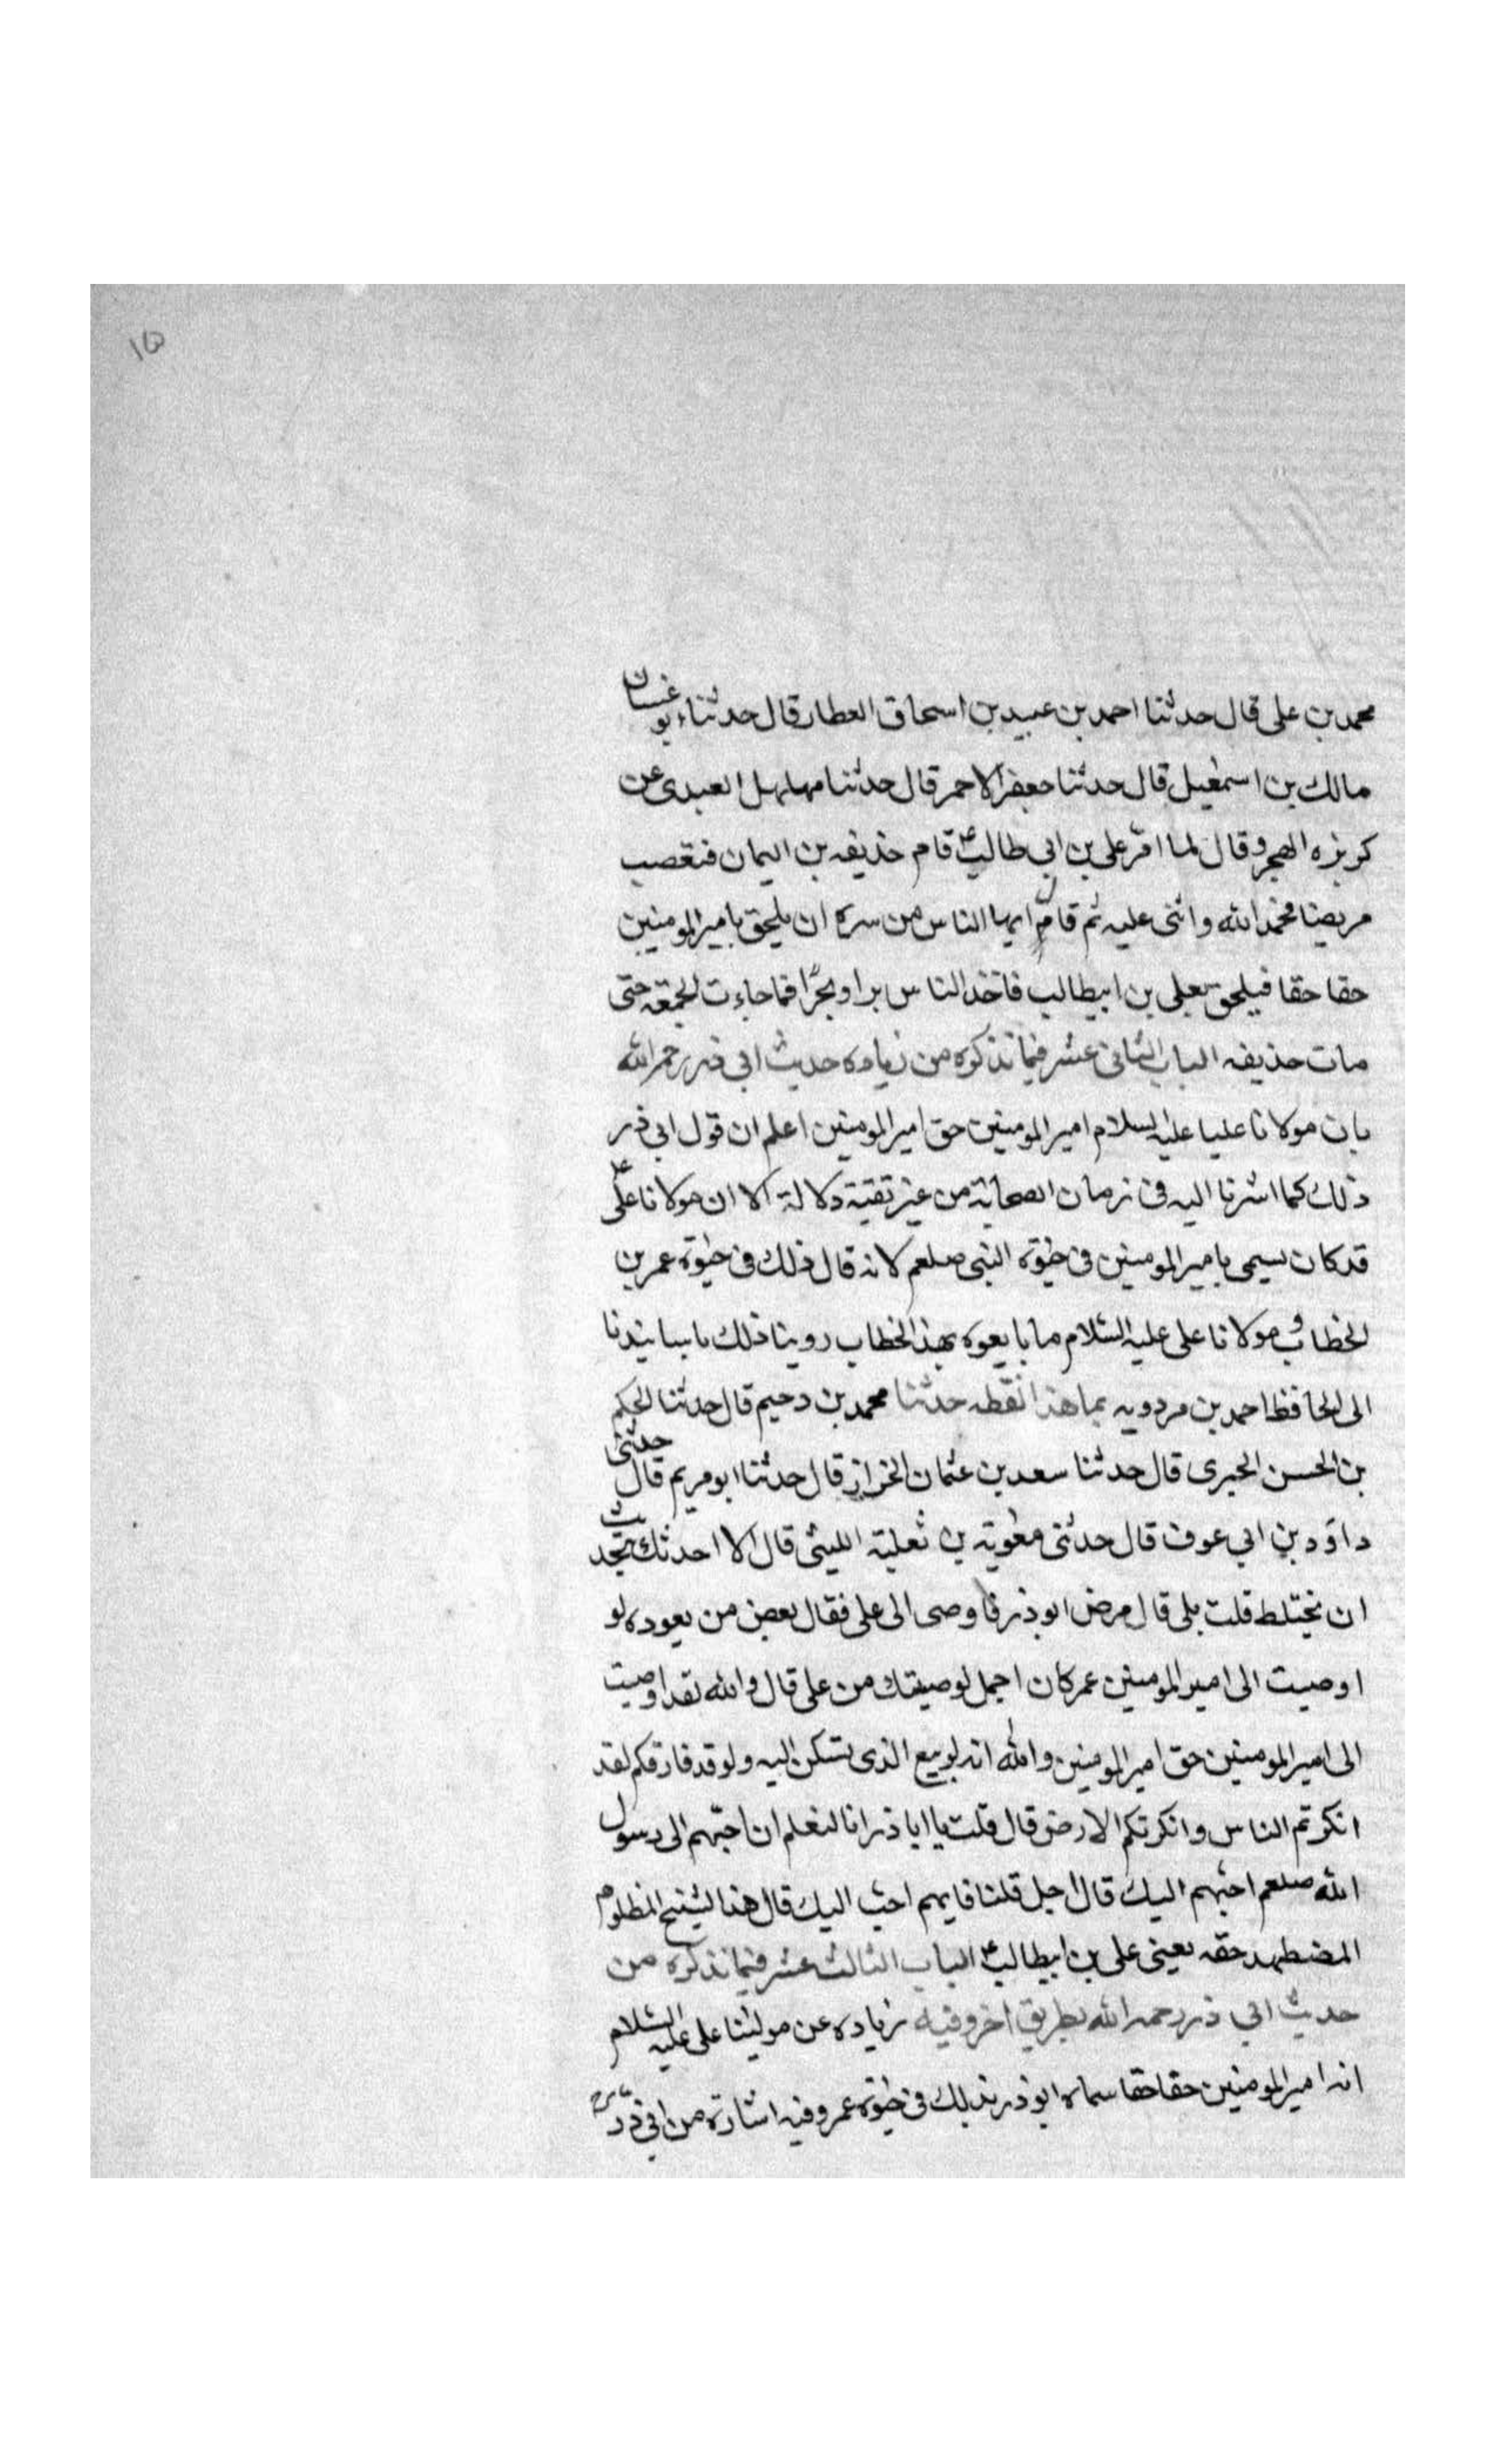 ١٥
محمد بن على قال حدثنا احمد بن عبيد بن اسحاق العطار قال حدثنا ابو غسان
مالك بن اسمعيل قال حدثنا جعفر الاحمر قال حدثنا مهلهل العبدى عن
كريزه الهجر وقال لما امر على بن ابى طالب ع قام حذيفه بن اليمان فتعصب
مريضا فحمد الله واثنى عليه ثم قال ايها الناس من سره ان يلحق بامير المومنين
حقا حقا فيلحق بعلى بن ابيطالب فاخذ الناس برا وبحرا فما جاءت الجمعة حتى
مات حذيفه الباب الثانى عشر فيما نذكره من زياده حديث ابى ذر رحمه الله
بان مولانا عليا عليه السلام امير المومنين حق امير المومنين اعلم ان قول ابى ذر
ذلك كما اشرنا اليه فى زمان الصحابة من غير تقية دلالة الا ان مولانا على ع
قد كان يسمى بامير المومنين فى حيوة النبى صلعم لانه قال ذلك فى حيوة عمر بن
الخطاب و مولانا على عليه السلام ما بايعوه بهذا الخطاب روينا ذلك باسانيدنا
الى الحافظ احمد بن مردويه بما هذا لفظه حدثنا محمد بن دحيم قال حدثنا الحكم
بن الحسن الحبرى قال حدثنا سعد بن عثمان الخزاز قال حدثنا ابو مريم قال حدثنى
داود بن ابى عوف قال حدثنى معوية بن ثعلبة الليثى قال الا احدثك بحديث
ان يختلط قلت بلى قال مرض ابو ذر فاوصى الى على فقال بعض من يعوده لو
اوصيت الى امير المومنين عمر كان اجمل لوصيتك من على قال والله لقد اوصيت
الى امير المومنين حق امير المومنين والله انه لربيع الذى يسكن اليه ولو قد فارقكم لقد
انكرتم الناس وانكرتكم الارض قال قلت يا ابا ذر انا لنعلم ان احبهم الى رسول
الله صلعم احبهم اليك قال اجل قلنا فايهم احب اليك قال هذا الشيخ المظلوم
المضطهد حقه يعنى على بن ابيطالب ع الباب الثالث عشر فيما نذكره من
حديث ابى ذر رحمه الله بطريق اخر وفيه زياده عن مولينا على عليه السلام
انه امير المومنين حقا حقا سماه ابو ذر بذلك فى حيوة عمر وفيه اشارة من ابى ذر